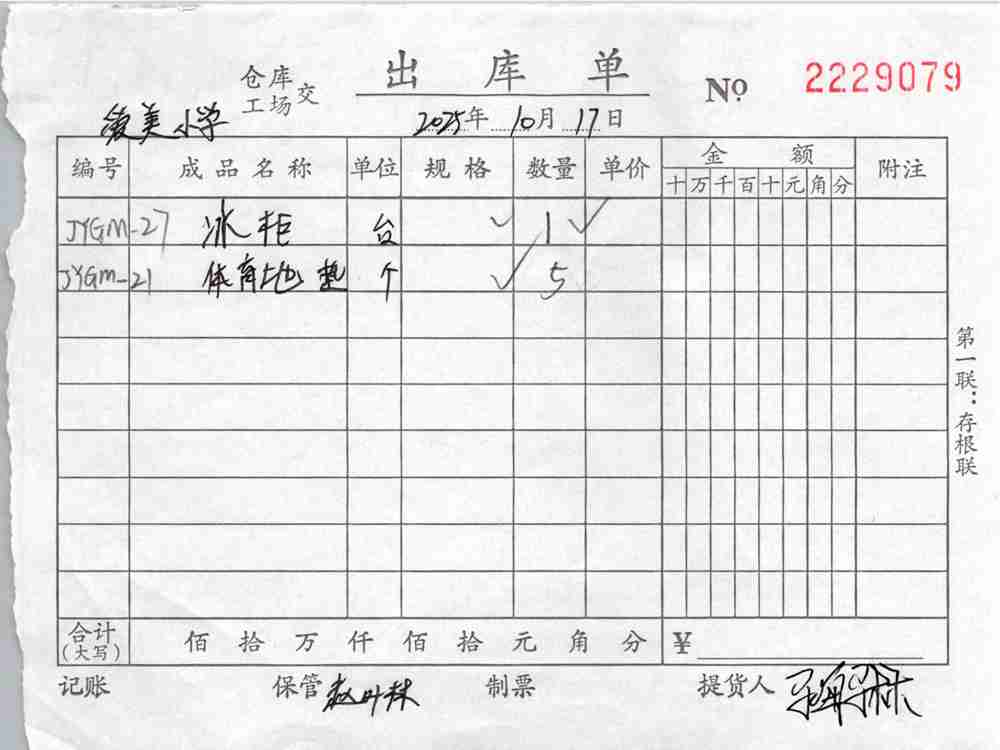 出库单
仓库
工场 交
№ 2229079
美小学
2025年10月17日
编号 成品名称 单位 规格 数量 单价 金额 附注
十万千百十元角分
JYGM-27 冰柜 台 ✓ 1 ✓
JYGM-21 体育地垫 个 ✓ 5
第一联：存根联
合计（大写） 佰拾万仟佰拾元角分 ¥
记账 保管 赵叶林 制票 提货人